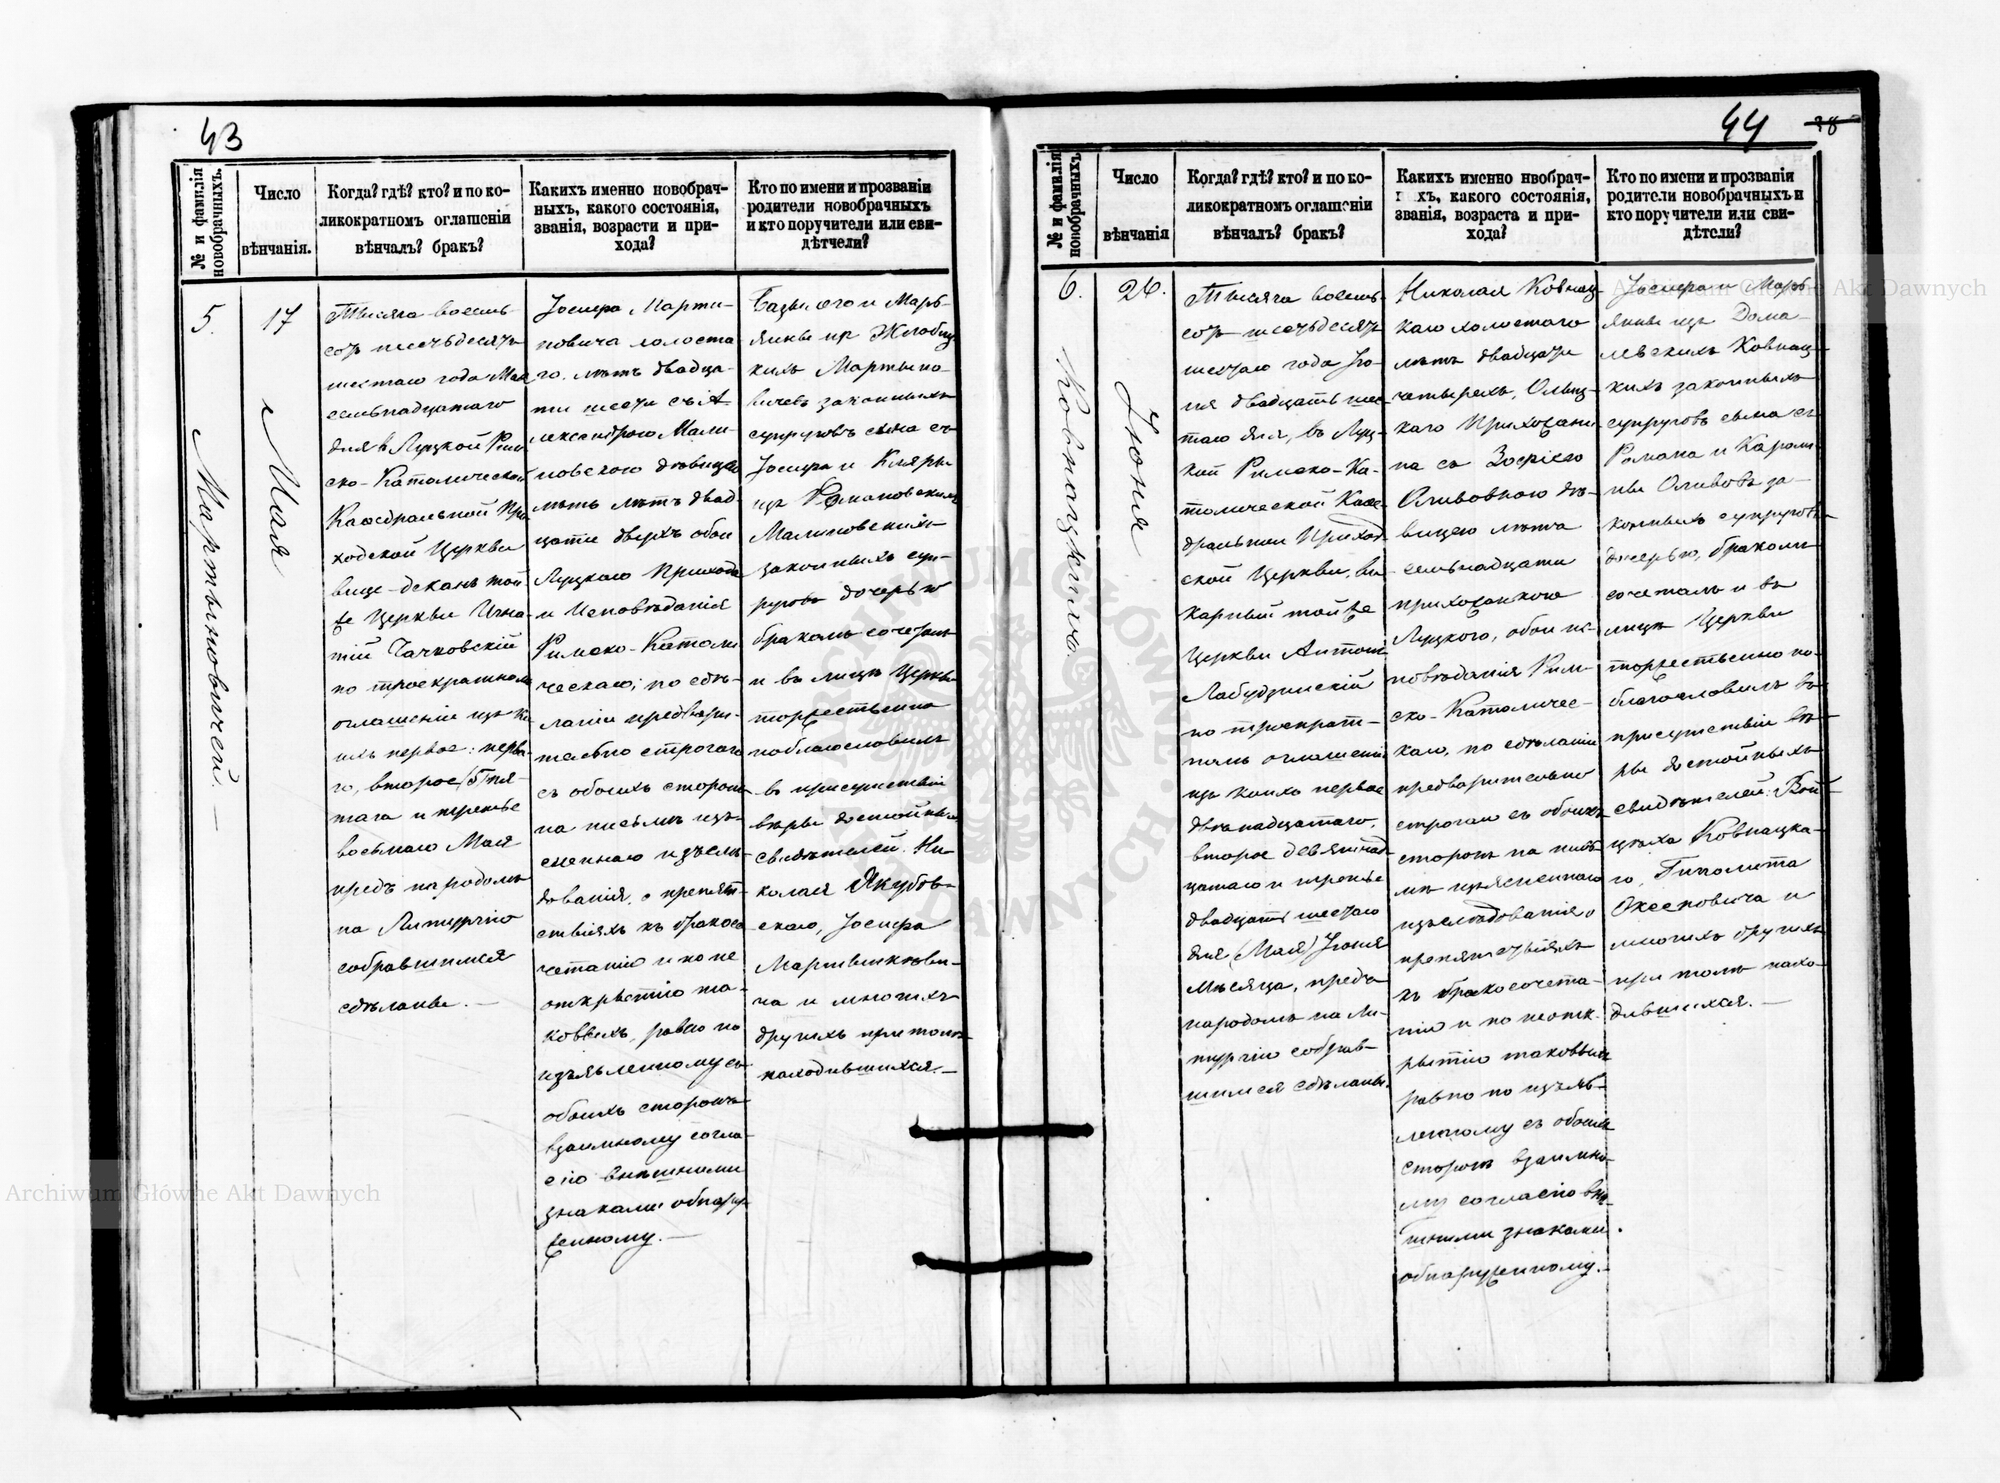 43
№ и фамилія новобрачныхъ.
Число вѣнчанія.
Когда? гдѣ? кто? и по ко-
ликократномъ оглашеніи
вѣнчалъ? бракъ?
Какихъ именно новобрач-
ныхъ, какого состоянія,
званія, возрасти и при-
хода?
Кто по имени и прозваніи
родители новобрачныхъ
и кто поручители или сви-
дѣтчели?
5.
Мартыновичей. —
17
Мая
Тысяча восемь
сотъ шестьдесятъ
шестаго года Мая
семьнадцатаго
дня в Луцкой Рим
ско-Католической
Каѳедральной При
ходской Церкви
вице-деканъ той
же Церкви Игна
тій Чачковскій
по троекратномъ
оглашеніи изъ ко
ихъ первое: перва
го, второе пя-
таго и третье
восьмаго Мая
предъ народомъ
на Литургію
собравшимся
сдѣланы. —
Іосифа Марти-
новича холоста
го лѣтъ двадца-
ти шести съ А
лександрою Мали-
новскою дѣвицею
лѣтъ двад-
цати двухъ обои
Луцкаго Прихода
и Исповѣданія
Римско-Католи
ческаго; по сдѣ-
ланіи предвари-
тельно строгаго
съ обоихъ сторонъ
на письмѣ изъ-
сненнаго изъслѣ-
дованія, о препят-
ствіяхъ къ бракосо
четанію и по не
открытію та-
ковыхъ, равно по
изъявленному съ
обоихъ сторонъ
взаимному согла-
сію внѣшними
знаками обнару
женному. —
Базылего и Марь-
янны из Жлобиц
кихъ Мартыно-
вичевъ законныхъ
супруговъ сына съ
Іосифа и Клары
изъ Романовскихъ
Малиновскихъ
законныхъ суп-
руговъ дочерью
бракомъ сочеталъ
и въ лицѣ Церкви
торжественно
поблагословилъ
въ присутствіи
вѣры достойныхъ
свидѣтелей. Ни-
колая Якубов-
скаго, Іосифа
Мартынкѣви-
ча и многихъ
другихъ при томъ
находившихся. —
44
38
№ и фамилія новобрачныхъ.
Число вѣнчанія
Когда? гдѣ? кто? и по ко-
ликократномъ оглашеніи
вѣнчалъ? бракъ?
Какихъ именно нвобрач-
хъ, какого состоянія,
званія, возраста и при-
хода?
Кто по имени и прозваніи
родители новобрачныхъ и
кто поручители или сви-
дѣтели?
6.
Ковнацкихъ
26.
Іюня
Тысяча восемь-
сотъ шестьдесятъ
шестаго года Ію-
ня двадцать шес
таго дня, въ Луц-
кой Римско-Ка-
толической Каѳе
дральной Приход
ской Церкви, ви
карный той же
Церкви Антоній
Лабудзинскій
по троекрат-
номъ оглашеніи
изъ коихъ первое
двѣнадцатаго,
второе девятнад
цатаго и третье
двадцать шестаго
дня (Мая) Іюня
мѣсяца, предъ
народомъ на Ли-
тургію собрав-
шимся сдѣланы.
Николая Ковнац-
каго холостаго
лѣтъ двадцати
четырехъ, Олыц-
каго Прихожани
на съ Зофіею
Оливовною дѣ-
вицею лѣта
семьнадцати
прихожанкою
Луцкого, обои ис-
повѣданія Рим-
ско-Католичес-
каго, по сдѣланіи
предварительно
строгаго съ обоихъ
сторонъ на пись
мѣ изъясненнаго
изъслѣдованія о
препятствіяхъ
къ бракосочета-
нію и по неотк-
рытію таковыхъ
равно по изъяв-
ленному съ обоихъ
сторонъ взаимно-
му согласію внѣ-
шними знаками
обнаруженному. —
Іосифа и Марь
янны изъ Дома-
левскихъ Ковнац-
кихъ законныхъ
супруговъ сына съ
Романа и Кароли
ны Оливовъ за-
конныхъ супруговъ
дочерью, бракомъ
сочеталъ и въ
лицѣ Церкви
торжественно по-
благословилъ въ
присутствіи вѣ-
ры достойныхъ
свидѣтелей: Вой-
цѣха Ковнацка-
го, Гиполита
Оксеновича и
многихъ другихъ
при томъ нахо-
дившихся. —
Archiwum Główne Akt Dawnych
Archiwum Główne Akt Dawnych
ARCHIWUM GŁÓWNE AKT DAWNYCH